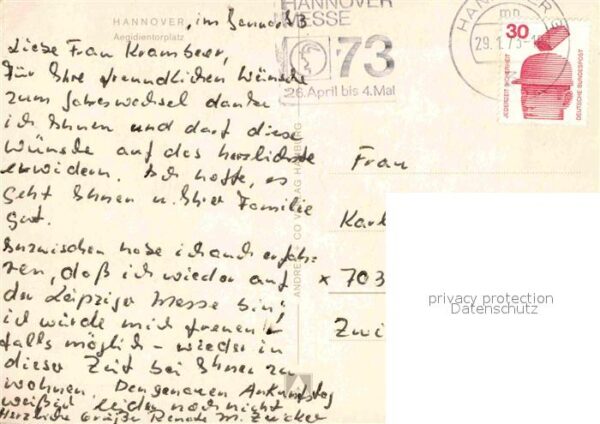 HANNOVER
Aegidientorplatz
im Januar 73
Liebe Frau Krambeer,
für Ihre freundlichen Wünsche
zum Jahreswechsel danke
ich Ihnen und darf diese
Wünsche auf das herzlichste
erwidern. Ich hoffe, es
geht Ihnen u. Ihrer Familie
gut.
Inzwischen habe ich auch erfah-
ren, daß ich wieder auf
der Leipziger Messe bin;
ich würde mich freuen
falls möglich - wieder in
dieser Zeit bei Ihnen zu
wohnen. Den genauen Ankunftstag
weiß ich leider noch nicht
Herzliche Grüße Renate M.
HANNOVER
MESSE
73
26. April bis 4. Mai
HANNOVER
mn
29.1.73
30
JEDERZEIT SICHERHEIT
DEUTSCHE BUNDESPOST
ANDRES + CO VERLAG HAMBURG
Frau
Karl
x 703
Zwi
privacy protection
Datenschutz